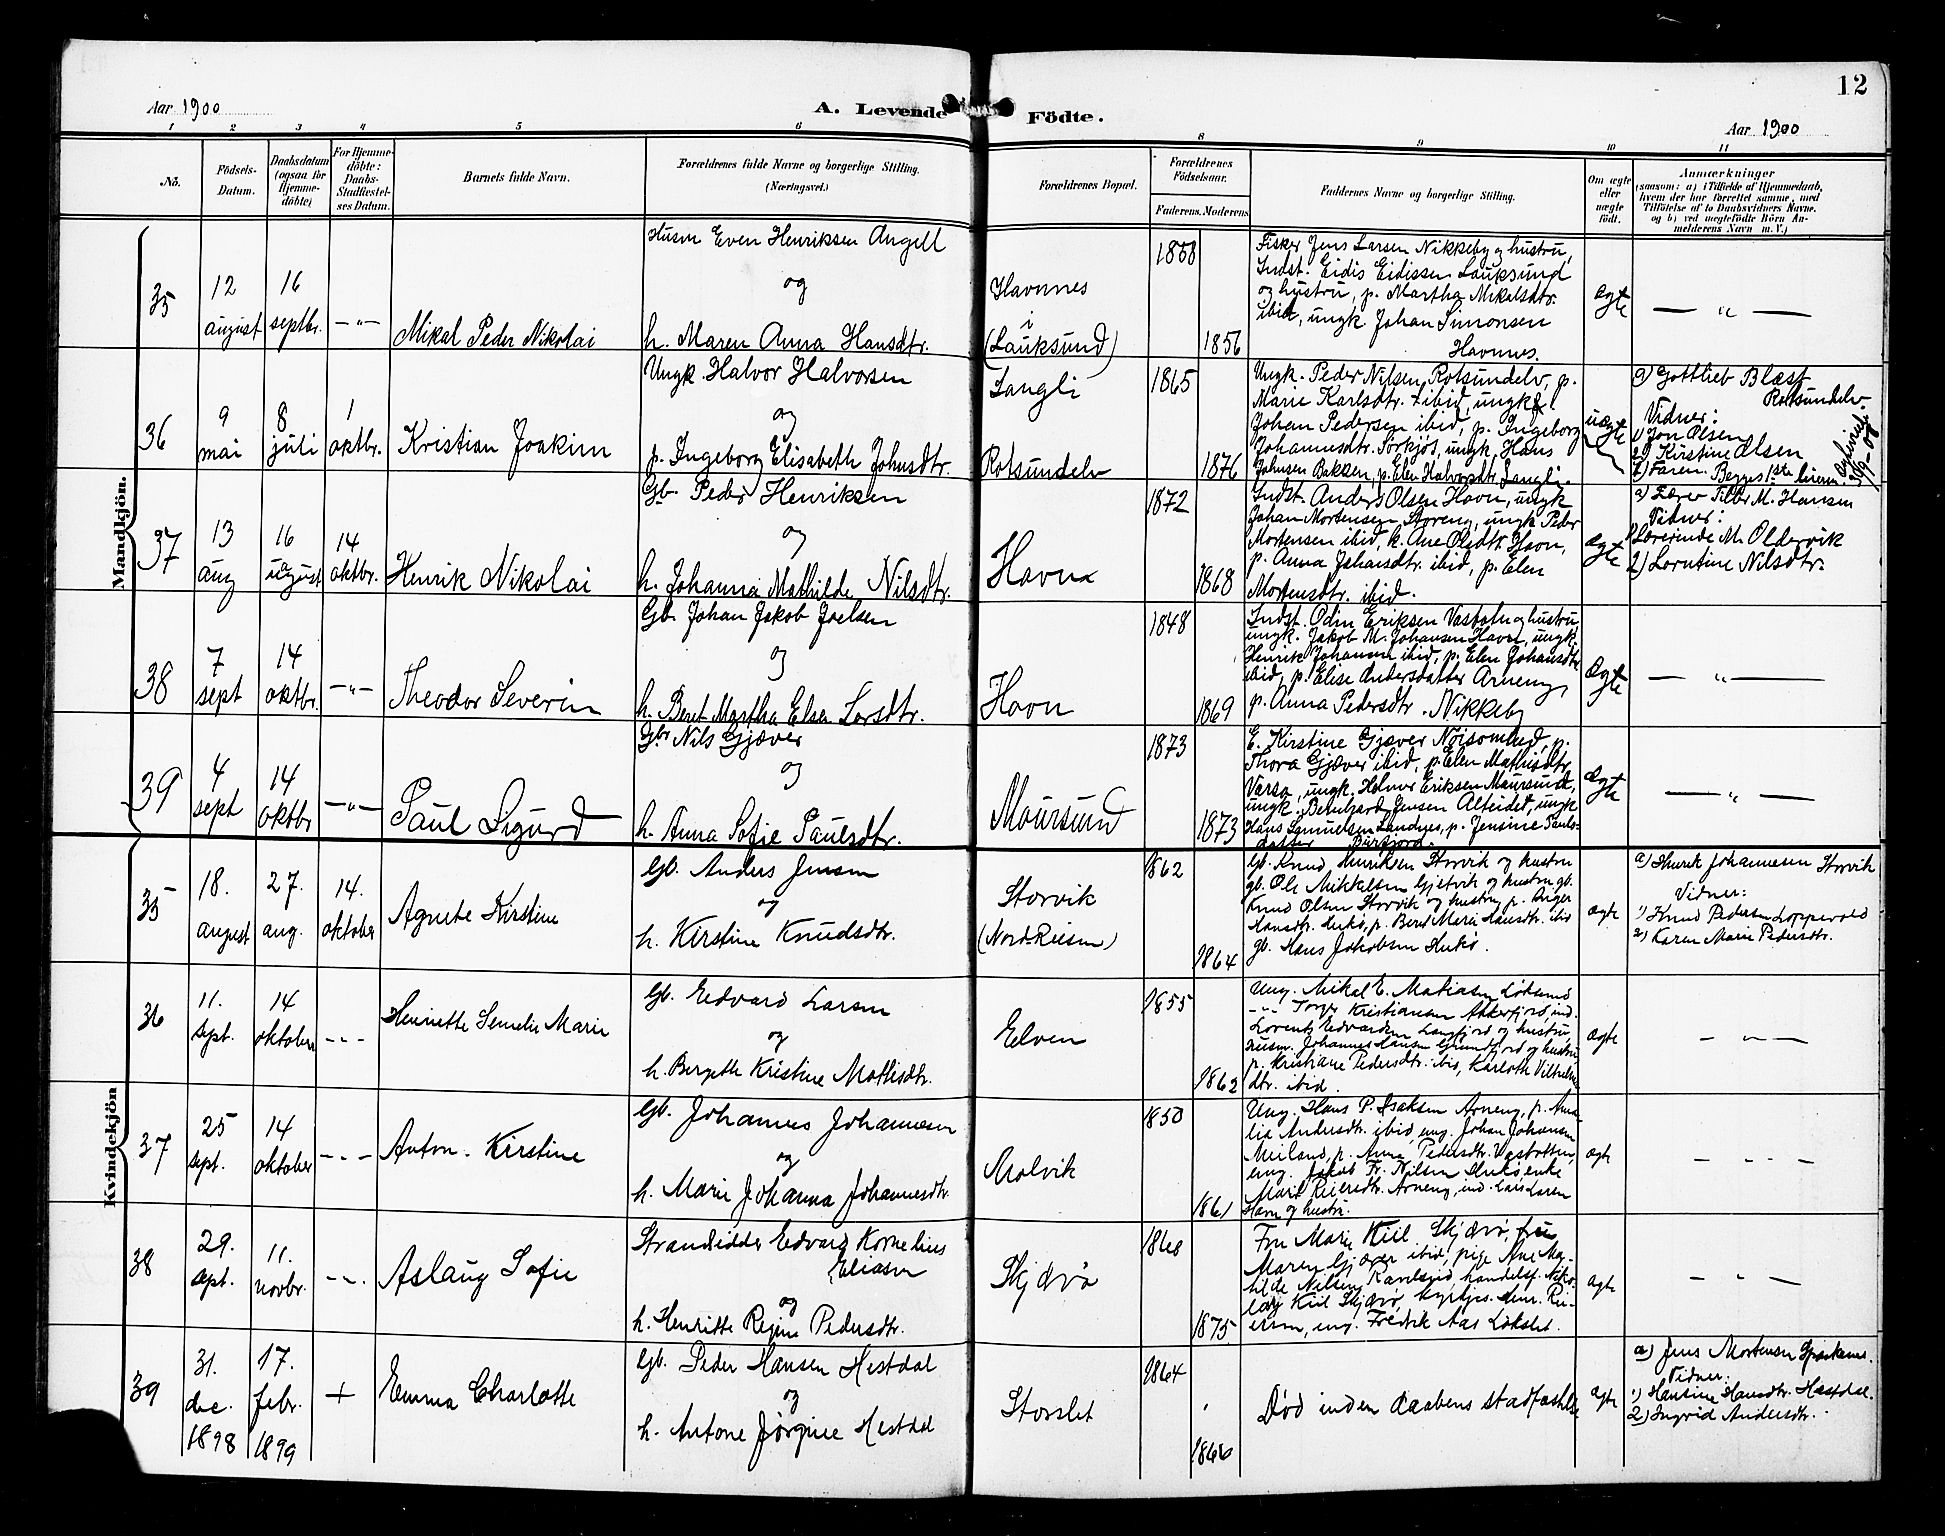 12
Aar 1900
A. Levende Födte.
Aar 1900
1 2 3 4 5 6 8 9 10 11
No.
Födsels-
Datum.
Daabsdatum
(ogsaa for
Hjemme-
döbte)
For Hjemme-
döbte:
Daabs-
Stadfæstel-
ses Datum.
Barnets fulde Navn.
Forældrenes fulde Navne og borgerlige Stilling.
(Næringsvei.)
Forældrenes Bopæl.
Forældrenes
Födselsaar.
Faderens. Moderens.
Faddernes Navne og borgerlige Stilling.
Om ægte
eller
uægte
født.
Anmærkninger
(saasom: a) i Tilfælde af Hjemmedaab,
hvem der har forrettet samme, med
Tilföielse af to Daabsvidners Navne,
og b) ved uægtefödte Börn An-
melderens Navn m. V.)
Mandkjön.
35
12
august
16
septbr.
-"-
Mikal Peder Nikolai
Husm Even Henriksen Angell
og
h. Maren Anna Hansdtr.
Havnnes
i
(Lauksund)
1858
1856
Fisker Jens Larsen Nikkeby og hustru,
Indst. Eidis Eidissen Lauksund
og hustru, p. Martha Mikalsdtr.
ibid, ungk Johan Simonsen
Havnnes.
ægte
— " —
36
9
mai
8
juli
1
oktbr.
Kristian Joakim
Ungk. Halvor Halvorsen
og
p. Ingeborg Elisabeth Johnsdtr.
Langli
Rotsundelv
1865
1876
Ungk. Peder Nilsen Rotsundelv, p.
Marie Karlsdtr. ibid, ungk
Johan Pedersen ibid, p. Ingeborg
Johannesdtr. Sörkjos, ungk. Hans
Johnsen Bakken, p. Elen Halvorsdtr. Langli.
uægte
a) Gottlieb Blæst
Rotsundelv
Vidner:
1) Jon Olsen
2) Kirstine Olsen
b) Faren. Begges 1ste
37
13
aug
16
august
14
oktbr.
Henrik Nikolai
Gb. Peder Henriksen
og
h. Johanna Mathilde Nilsdtr.
Havn
1872
1868
Indst. Anders Olsen Havn, ungk
Johan Mortensen Storeng, ungk Peder
Mortensen ibid, k. Ane Olsdtr. Havn,
p. Anna Johansdtr. ibid, p. Elen
Mortensdtr. ibid.
ægte
a) Lærer M. Hansen
Vidner:
1) Lærerinde M. Oldervik
2) Lorntine Nilsdtr.
38
7
sept
14
oktbr.
-"-
Theodor Severin
Gb. Johan Jakob Joelsen
og
h. Beret Martha Elsa Larsdtr.
Havn
1848
1869
Indst. Odin Eriksen Vasboten og hustru
ungk. Jakob M. Johansen Havn, ungk.
Henrik Johansen ibid, p. Elen Johansdtr
ibid, p. Elise Andersdatter Arneng,
p. Anna Pedersdtr. Nikkeby
ægte
— " —
39
4
sept
14
oktbr
-"-
Paul Sigurd
Gbr. Nils Gjæver
og
h. Anna Sofie Paulsdtr.
Maursund
1873
1873
E. Kirstine Gjæver Nøisomhed, p.
Thora Gjæver ibid, p. Elen Mathisdtr
Varsø, ungk. Helmer Eriksen Maursund,
ungk. Bernhard Jensen Alteidet, ungk
Hans Samuelsen Sandnes, p. Jensine Pauls-
datter Burfjord.
ægte
— " —
Kvindekjön
35
18.
august
27.
aug.
14.
oktober
Agnete Kirstine
Gb. Anders Jensen
og
h. Kirstine Knudsdtr.
Storvik
(Nord Reisen)
1862
1864
Gb. Knud Henriksen Storvik og hustru
gb. Ole Mikkelsen Gjetvik og hustru gb.
Knud Olsen Storvik og hustru, p. Inger
Hansdtr. Hukø, p. Beret Marie Hansdtr. ibid
gb. Hans Jakobsen Hukø.
ægte
a) Henrik Johannesen Storvik
Vidner:
1) Knud Pedersen Loppevold
2) Karen Marie Pedersdtr.
36
11.
sept.
14
oktober
-"-
Henriette Semelie Marie
Gb. Edvard Larsen
og
h. Bergette Kristine Mathisdtr.
Elven
1855
1862
Ung. Mikal E. Matiasen
-"- Kristiansen Akkerfjord, ind.
Lorents Edvardsen Langfjord og hustru,
Husm. Johannes Hansen Grundfjord og hustru
p. Kristiane Pedersdtr. ibid, Karloth Vilhelm-
dtr. ibid.
ægte
- " -
37
25
sept.
14
oktober
-"-
Anton. Kirstine
Gb. Johannes Johannesen
og
h. Marie Johanna Johannesdtr.
Molvik
1850
1861
Ung. Hans P. Isaksen Arneng, p. Ama-
lia Andersdtr. ibid, ung. Johan Johansen
Meiland, p. Anna Pedersdtr. Vasbotten,
ung. Jakob Fr. Nilsen Hukø, enke
Marit Reiersdtr. Arneng, ind. Lars Larsen
Havn og hustru.
ægte
- " -
38
29.
sept.
11.
novbr.
-"-
Aslaug Sofie
Strandsidder Edvard Kornelius
Eliasen
og
h. Henriette Regine Pedersdtr.
Skjærvø
1868
1875
Fru Marie Kiil Skjærvø, fru
Maren Gjæver ibid, pige Ane Ma-
tilde Nilsen, Karlsøid, handelsf. Niko-
lay Kiil Skjærvø, Kyrkjes. Henr. Rei-
ersen, ung. Fredrik Aas Løkslet.
ægte
- " -
39
31.
dec.
1898
17.
febr.
1899
+
Emma Charlotte
Gb. Peder Hansen Hestdal
og
h. Antone Jørgine Hestdal
Storslet
1864
1866
Død inden daabens stadfæstelse
ægte
a) Jens Mortensen Spaknes.
Vidner:
1) Hansine Hansdtr. Hestdal.
2) Ingrid Andersdtr.